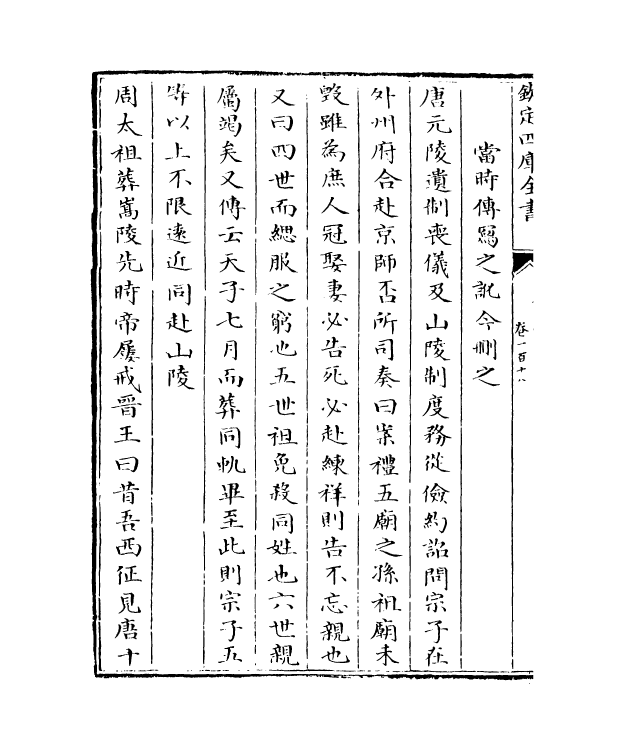 欽定四庫全書
卷一百十八
當時傳寫之訛今刪之
唐元陵遺制喪儀及山陵制度務從儉約詔問宗子在
外州府合赴京師否所司奏曰案禮五廟之孫祖廟未
毀雖為庶人冠娶妻必告死必赴練祥則告不忘親也
又曰四世而緦服之窮也五世祖免殺同姓也六世親
屬竭矣又傳云天子七月而葬同軌畢至此則宗子五
等以上不限遠近同赴山陵
周太祖葬嵩陵先時帝屢戒晉王曰昔吾西征見唐十